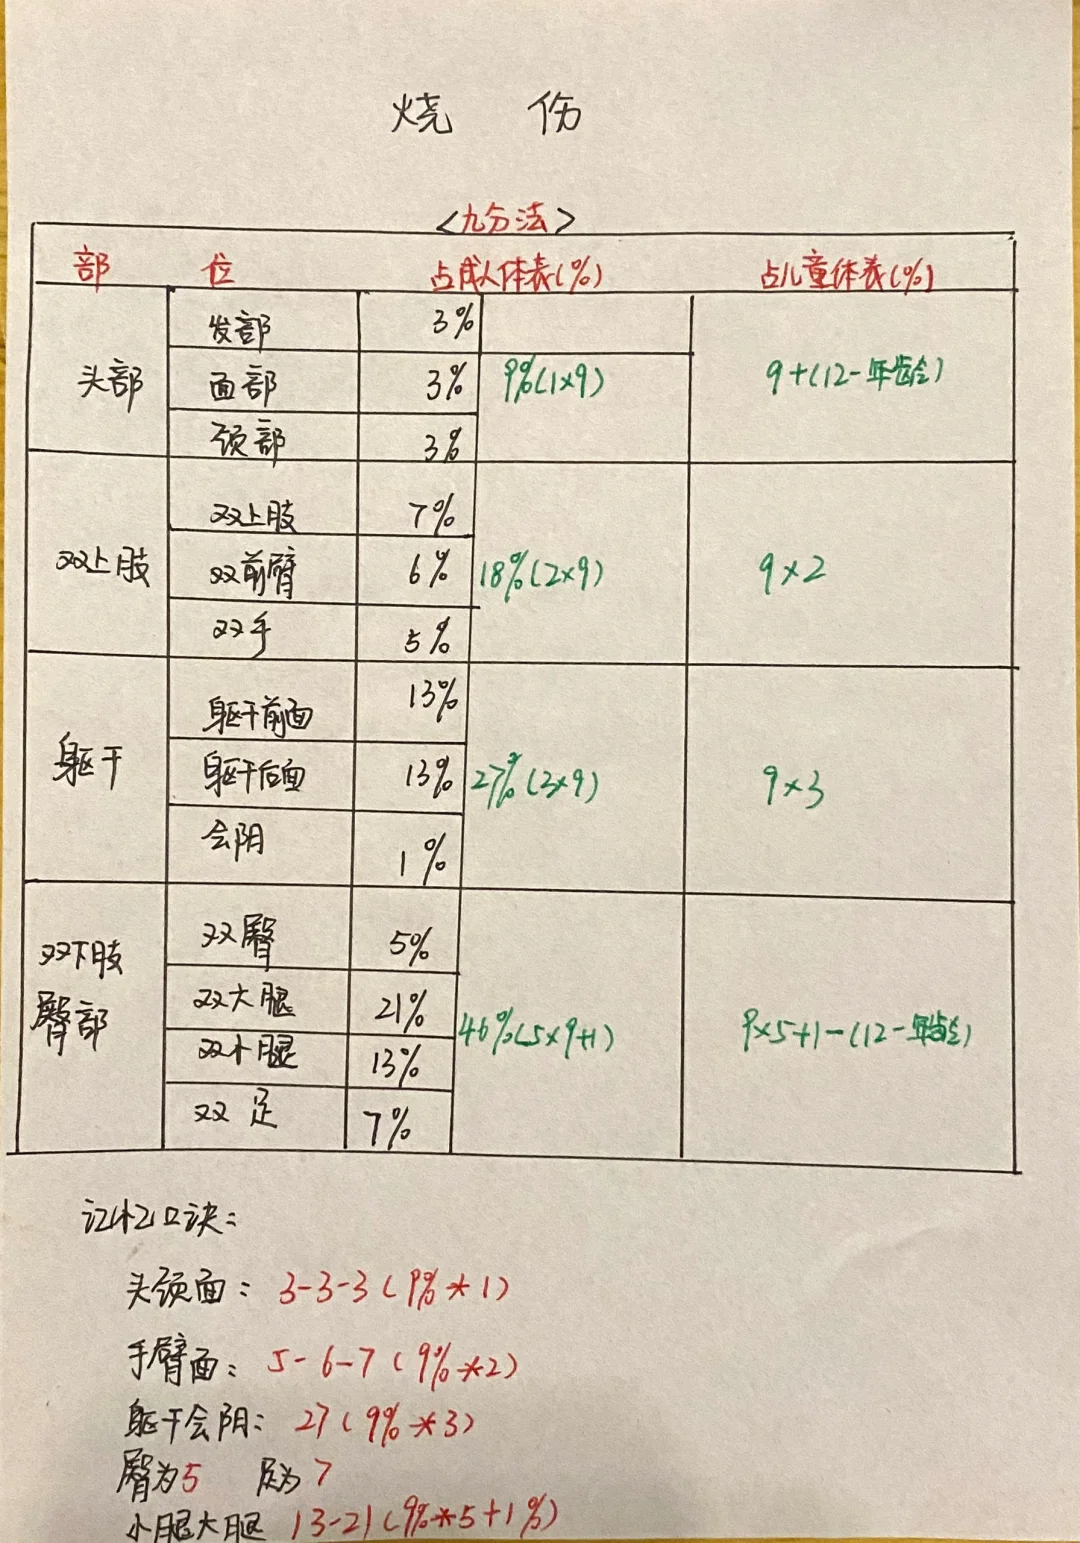 烧 伤
<九分法>
部 位 占成人体表(%) 占儿童体表(%)
头部 发部 3% 9%(1×9) 9+(12-年龄)
面部 3%
颈部 3%
双上肢 双上肢 7% 18%(2×9) 9×2
双前臂 6%
双手 5%
躯干 躯干前面 13% 27%(3×9) 9×3
躯干后面 13%
会阴 1%
双下肢臀部 双臀 5% 46%(5×9+1) 9×5+1-(12-年龄)
双大腿 21%
双小腿 13%
双足 7%
记忆口诀:
头颈面: 3-3-3(9%*1)
手臂面: 5-6-7(9%*2)
躯干会阴: 27(9%*3)
臀为5 足为7
小腿大腿 13-21(9%*5+1%)